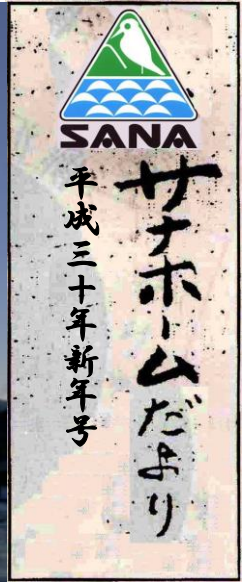 SANA
サナホームだより
平成三十年新年号